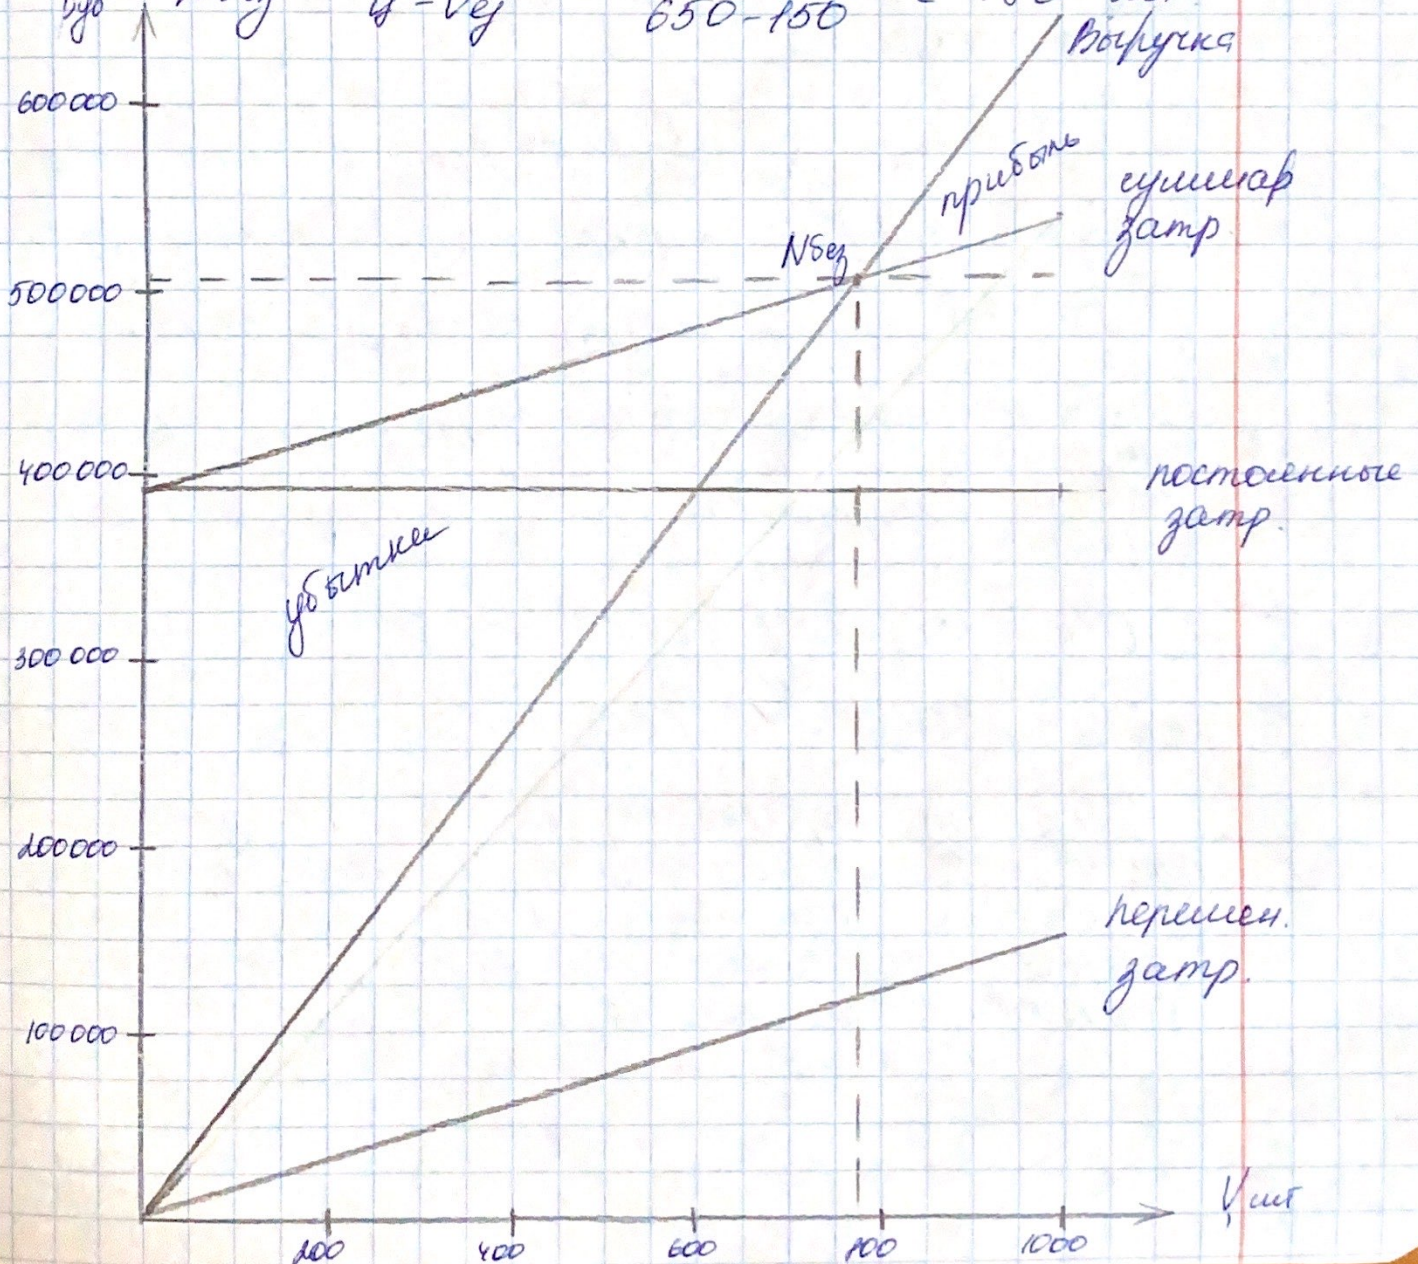 650-150
Выручка
600000
прибыль
суммар
затр.
Nбез
500000
400000
постоянные
затр.
убытки
300000
200000
перемен.
затр.
100000
V шт
200 400 600 800 1000